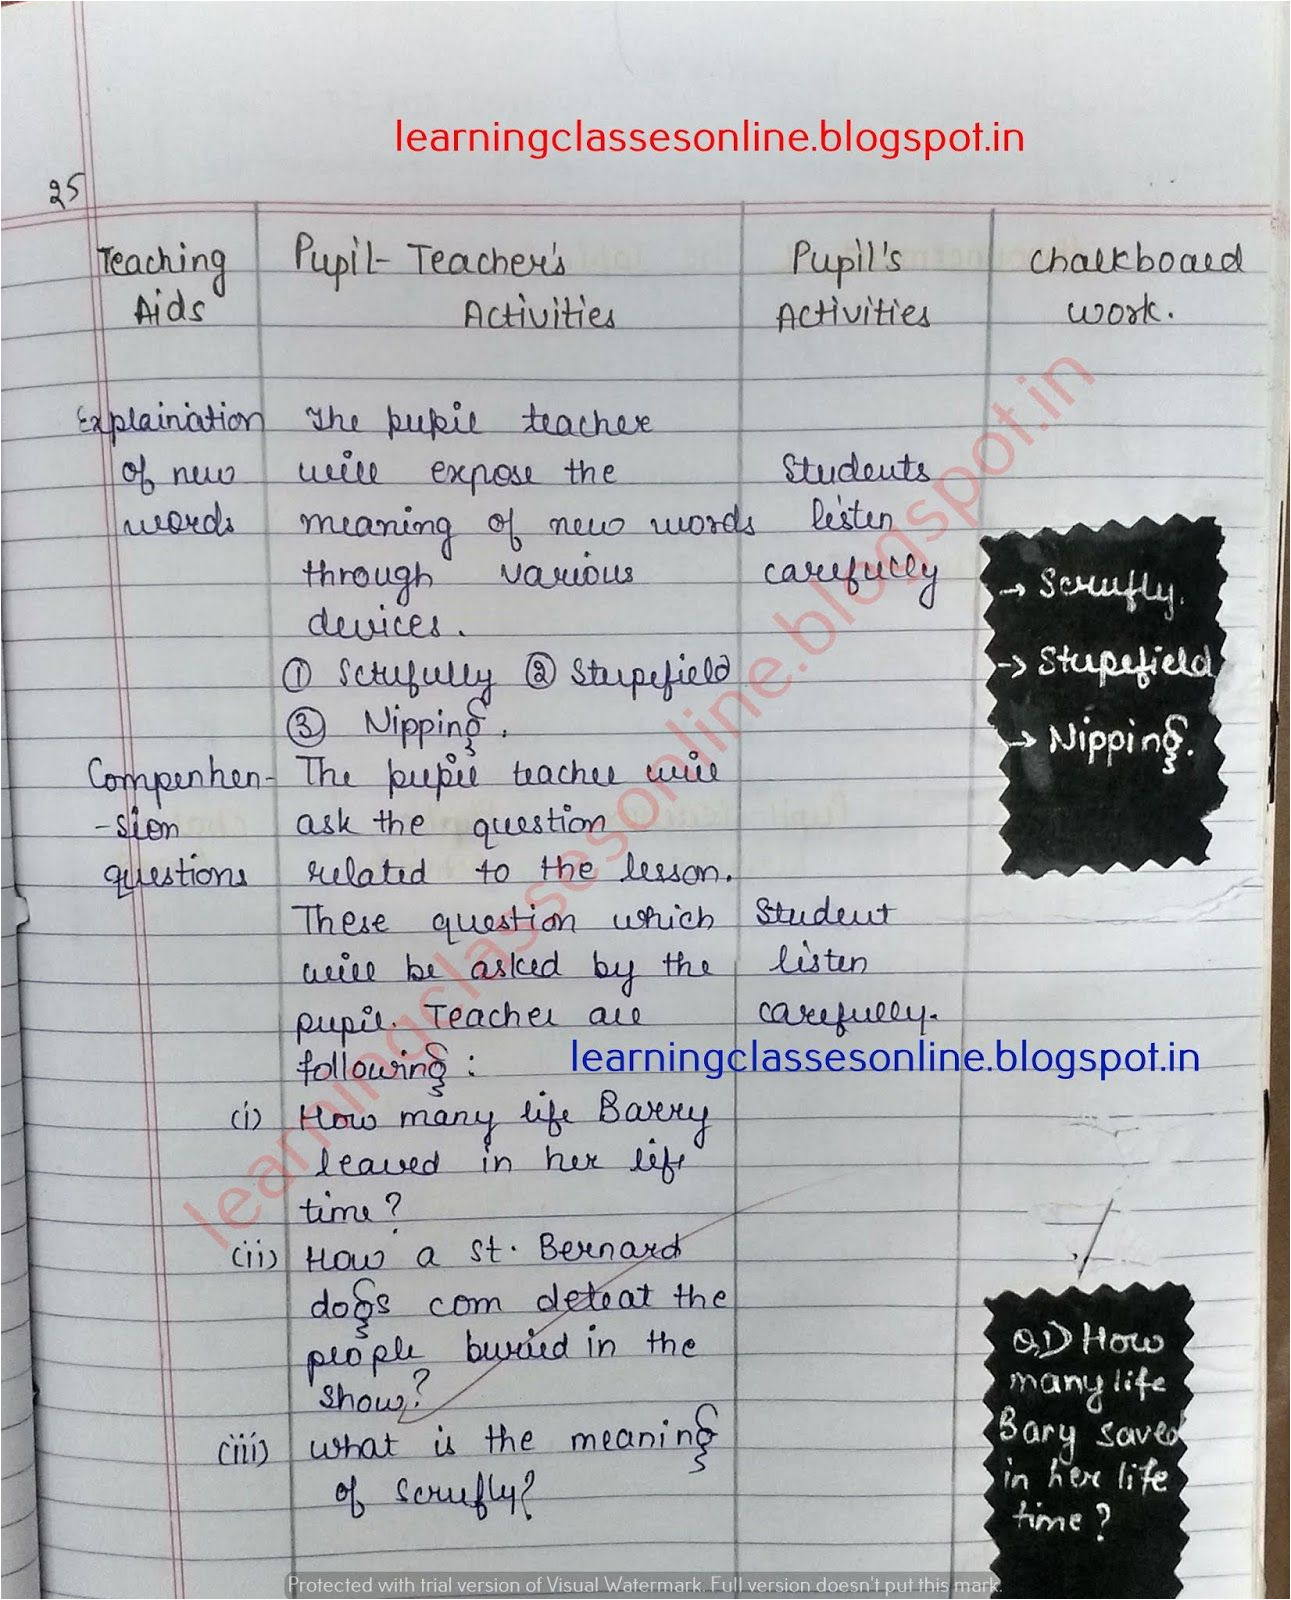 learningclassesonline.blogspot.in
25
Teaching Aids
Pupil- Teacher's Activities
Pupil's Activities
Chalkboard work.
Explainiation of new words
The pupil teacher
will expose the
meaning of new words
through various
devices.
① Sctufully ② Stupefield
③ Nipping.
Students
listen
carefully
→ Scrufly.
→ Stupefield
→ Nipping.
Compenhen-
-sion
questions
The pupil teacher will
ask the question
related to the lesson.
These question which
will be asked by the
pupil. Teacher are
following :
Student
listen
carefully.
learningclassesonline.blogspot.in
(i) How many life Barry
leaved in her life
time?
(ii) How a St. Bernard
dogs com deteat the
people buried in the
show?
(iii) what is the meaning
of Scrufly?
Q1) How
many life
Bary saved
in her life
time?
learningclassesonline.blogspot.in
Protected with trial version of Visual Watermark. Full version doesn't put this mark.